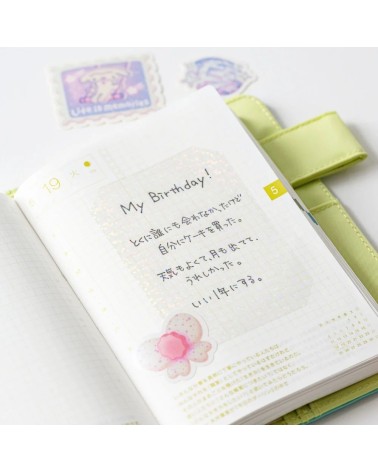 memories
19 火
My Birthday!
5
とくに誰にも会わなかったけど
自分にケーキを買った。
天気もよくて、月も出てて、
うれしかった。
いい1年にする。